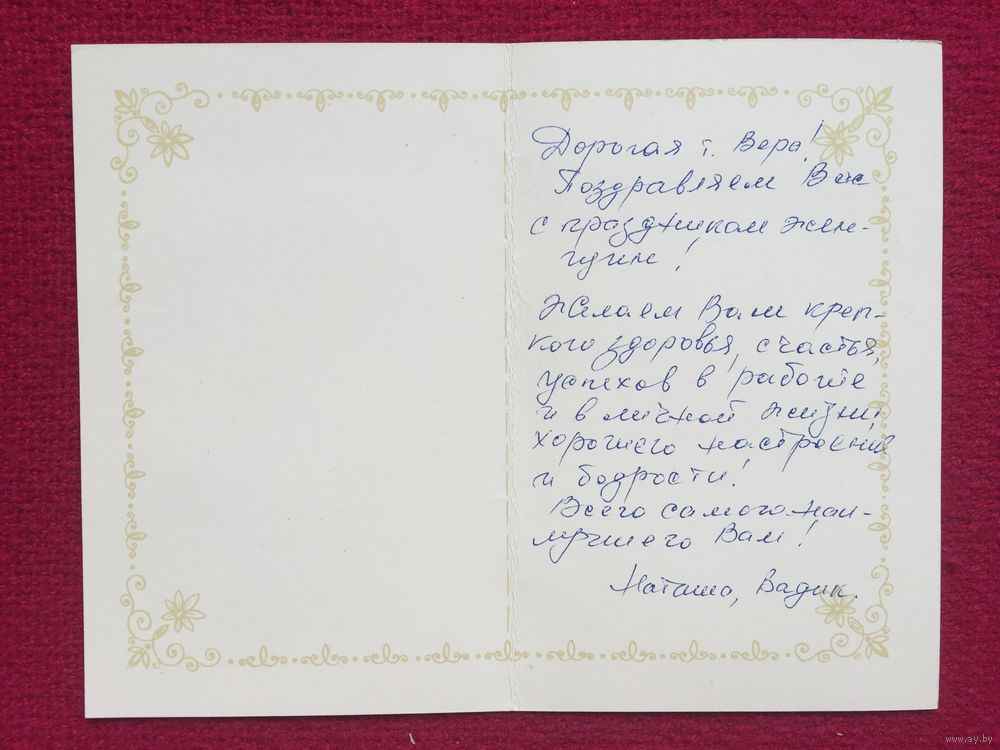 Дорогая т. Вера!
Поздравляем Вас
с праздником жен-
щин!
Желаем Вам креп-
кого здоровья, счастья,
успехов в работе
и в личной жизни,
хорошего настроения
и бодрости!
Всего самого наи-
лучшего Вам!
Наташа, Вадик.
www.ay.by